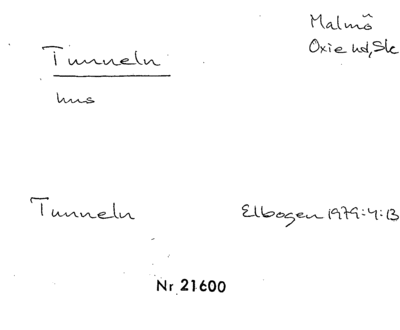 Malmö
Tunneln
Oxie hd, Sk
hus
Tunneln Elbogen 1979:4:13
Nr 21600